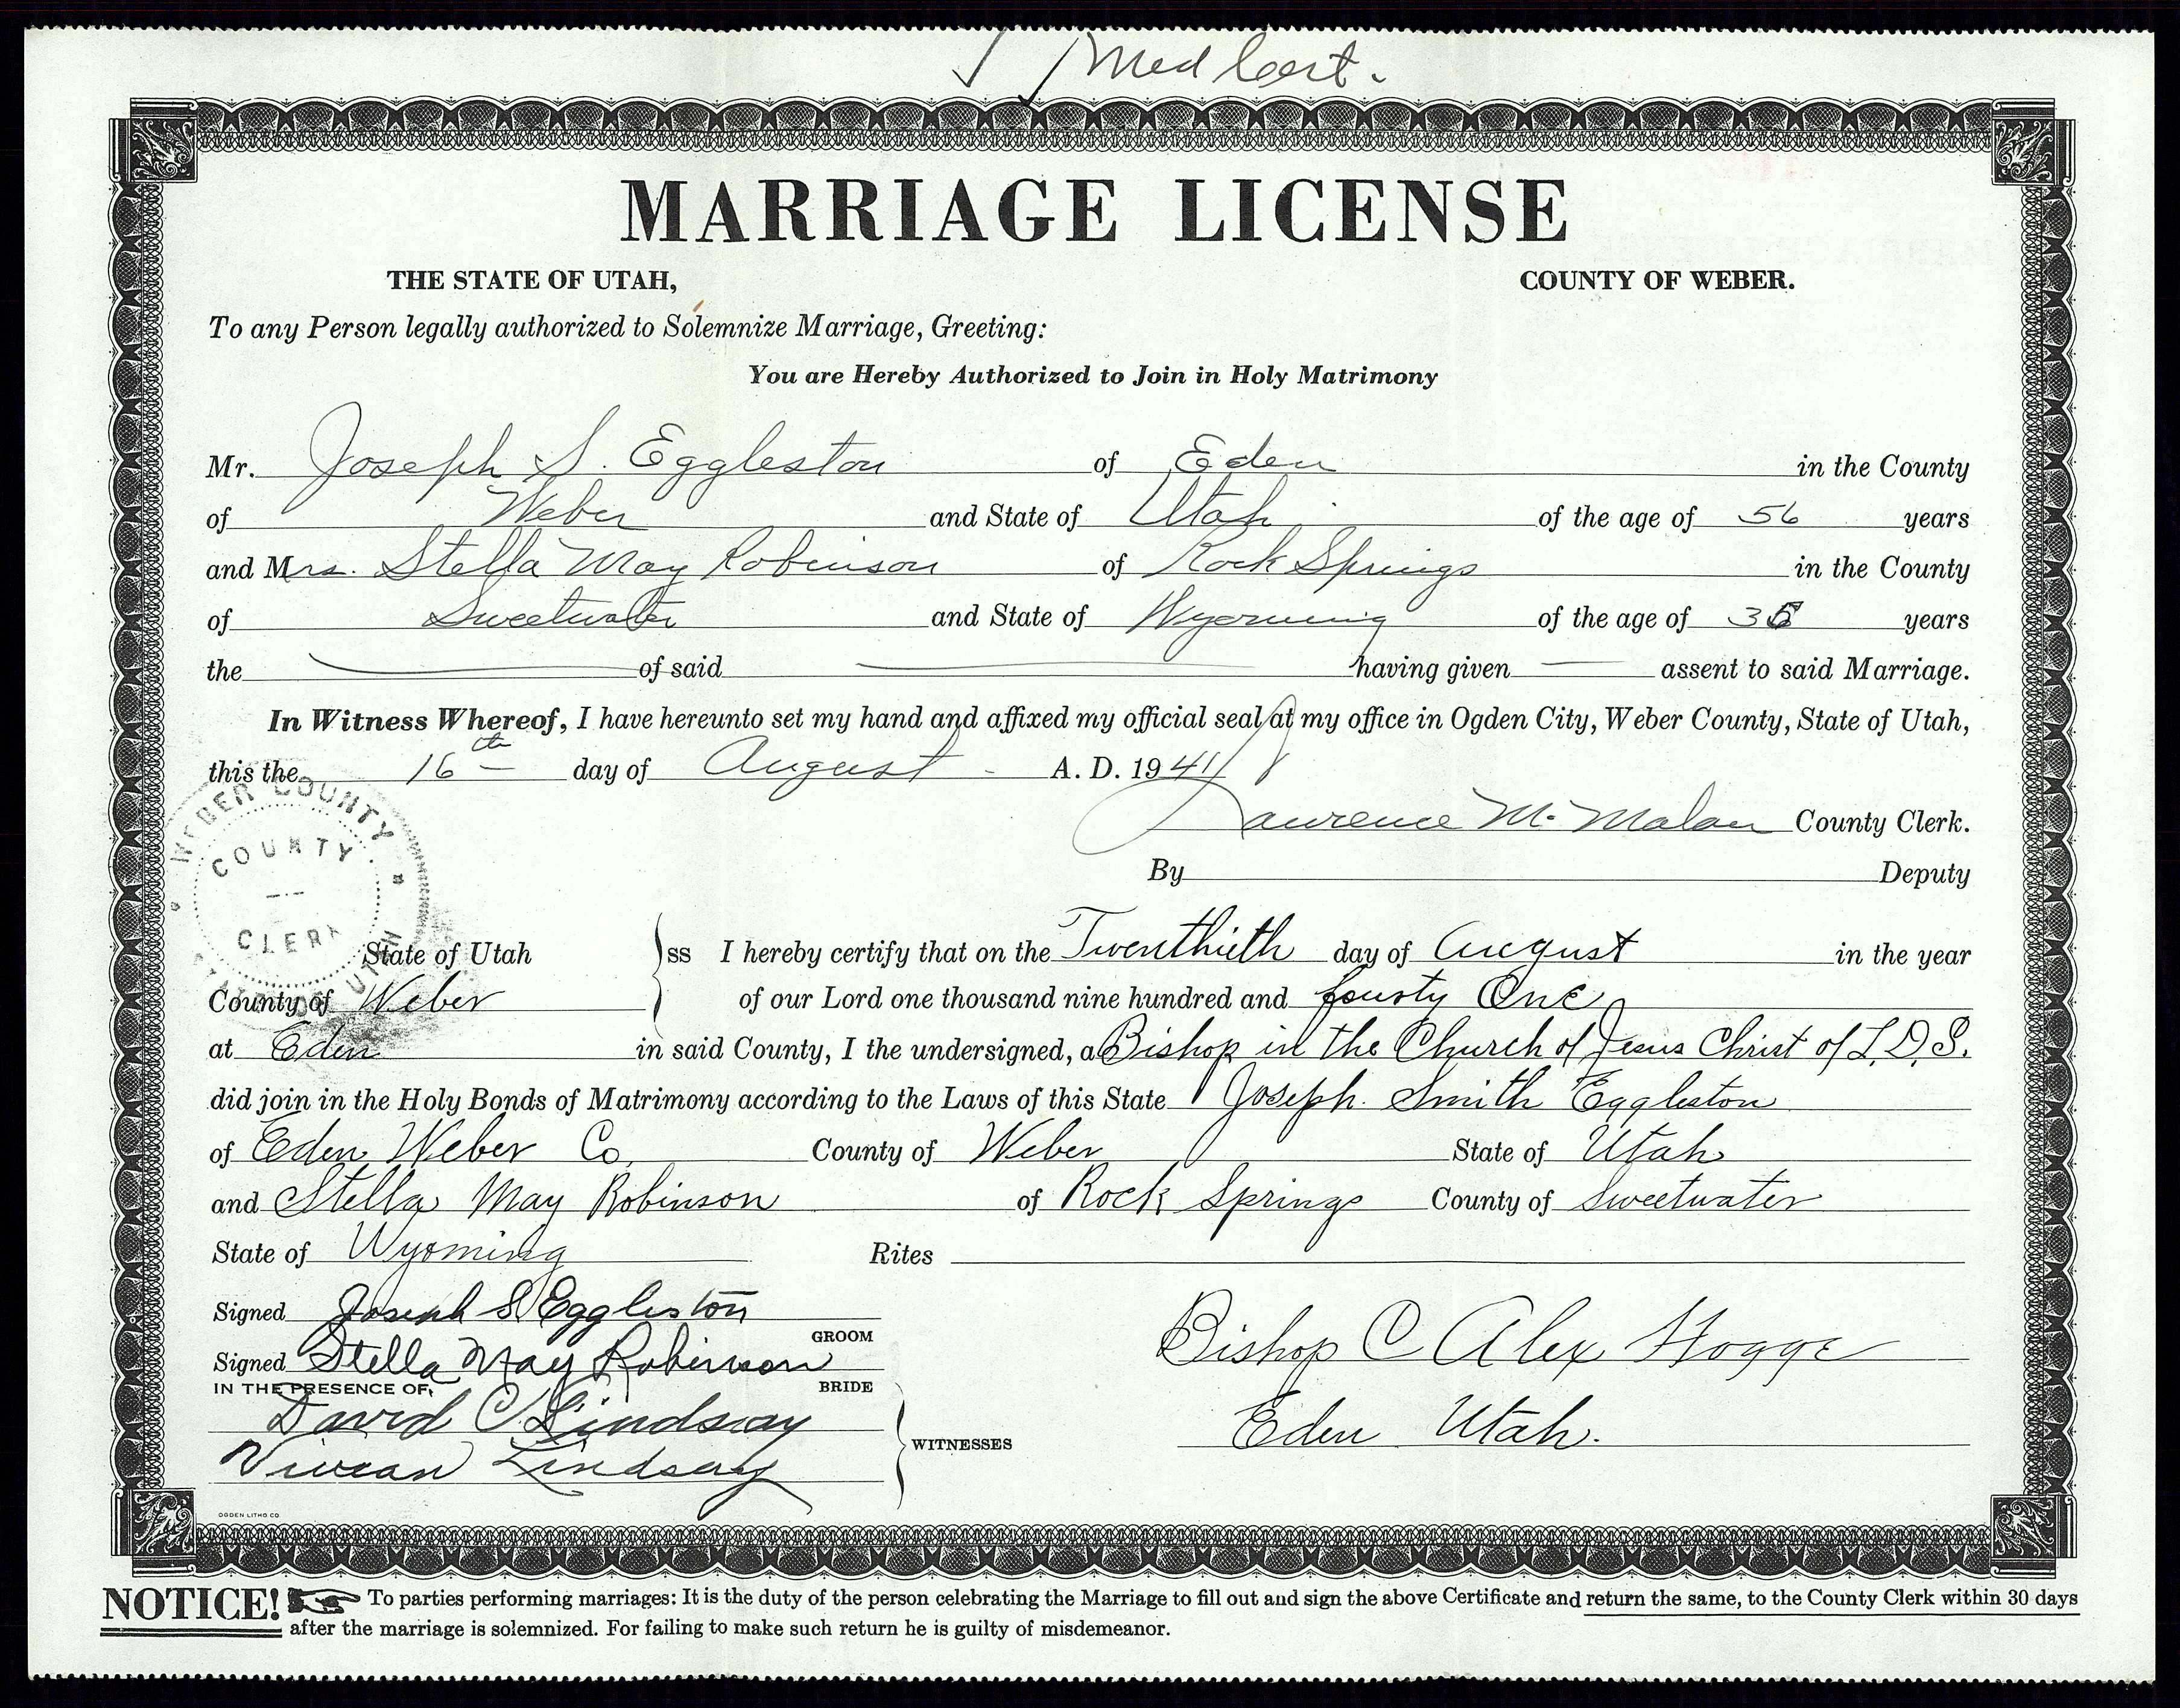 ✓ ✓ Med Cert.
MARRIAGE LICENSE
THE STATE OF UTAH, COUNTY OF WEBER.
To any Person legally authorized to Solemnize Marriage, Greeting:
You are Hereby Authorized to Join in Holy Matrimony
Mr. Joseph S. Eggleston of Eden in the County
of Weber and State of Utah of the age of 56 years
and Mrs. Stella May Robinson of Rock Springs in the County
of Sweetwater and State of Wyoming of the age of years
the of said having given assent to said Marriage.
In Witness Whereof, I have hereunto set my hand and affixed my official seal at my office in Ogden City, Weber County, State of Utah,
this the 16th day of August A. D. 1941
Laurence M. Malan County Clerk.
By Deputy
WEBER COUNTY
COUNTY
CLERK
State of Utah ss I hereby certify that on the Twenthieth day of August in the year
County of Weber of our Lord one thousand nine hundred and fourty One
at Eden in said County, I the undersigned, a Bishop in the Church of Jesus Christ of L.D.S.
did join in the Holy Bonds of Matrimony according to the Laws of this State Joseph Smith Eggleston
of Eden Weber Co. County of Weber State of Utah
and Stella May Robinson of Rock Springs County of Sweetwater
State of Wyoming Rites
Signed Joseph S Eggleston
GROOM
Signed Stella May Robinson
IN THE PRESENCE OF, BRIDE
David C Lindsay
Vivian Lindsay
WITNESSES
Bishop C Alex Hogge
Eden Utah.
OGDEN LITHO CO.
NOTICE! To parties performing marriages: It is the duty of the person celebrating the Marriage to fill out and sign the above Certificate and return the same, to the County Clerk within 30 days
after the marriage is solemnized. For failing to make such return he is guilty of misdemeanor.